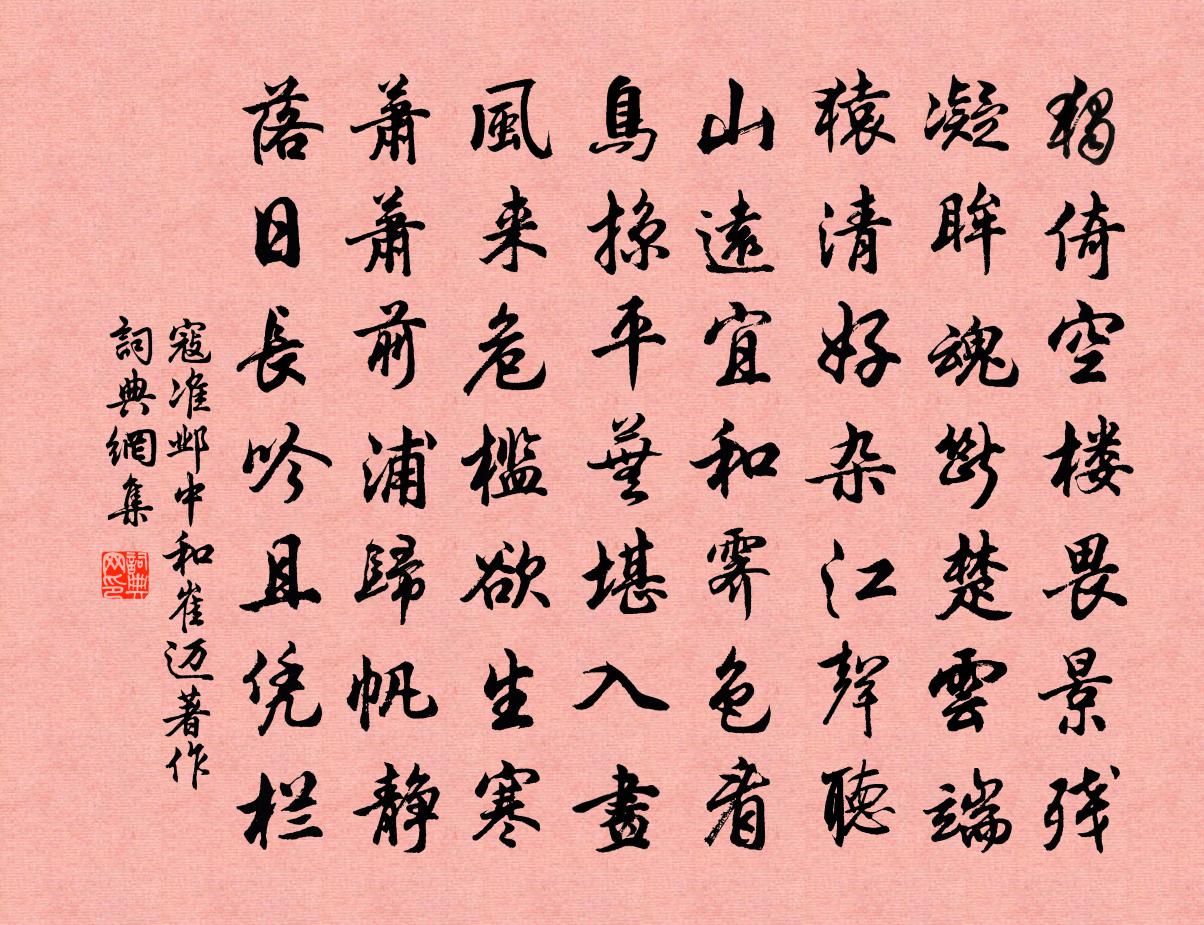 獨倚空楼畏景残
凝眸魂斷楚雲端
猿清好杂江聲聽
山遠宜和霽色看
鳥掠平蕪堪入畫
風来危檻欲生寒
蕭蕭前浦歸帆静
落日長吟且凭栏
寇准邺中和崔迈著作
詞典網集
詞典网印